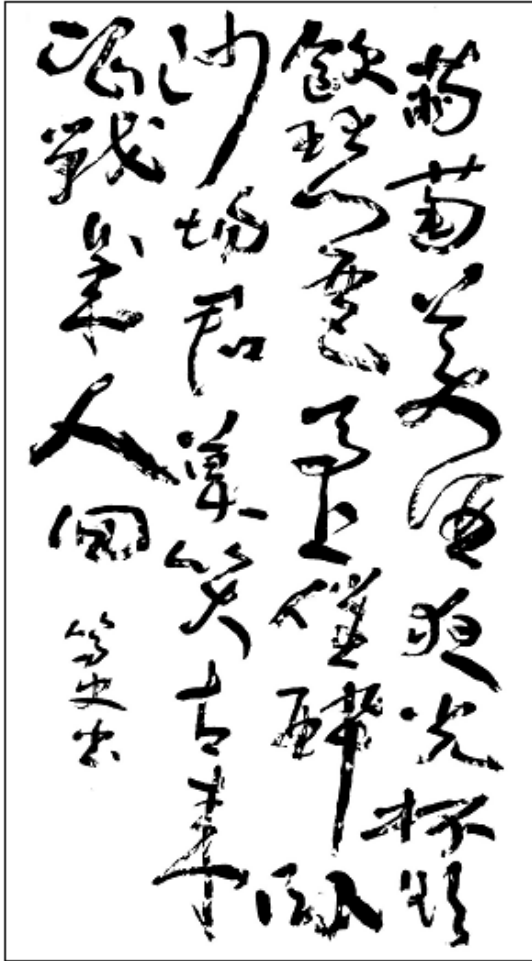 葡萄美酒夜光杯欲
飲琵琶馬上催醉臥
沙場君莫笑古來
征戰幾人回